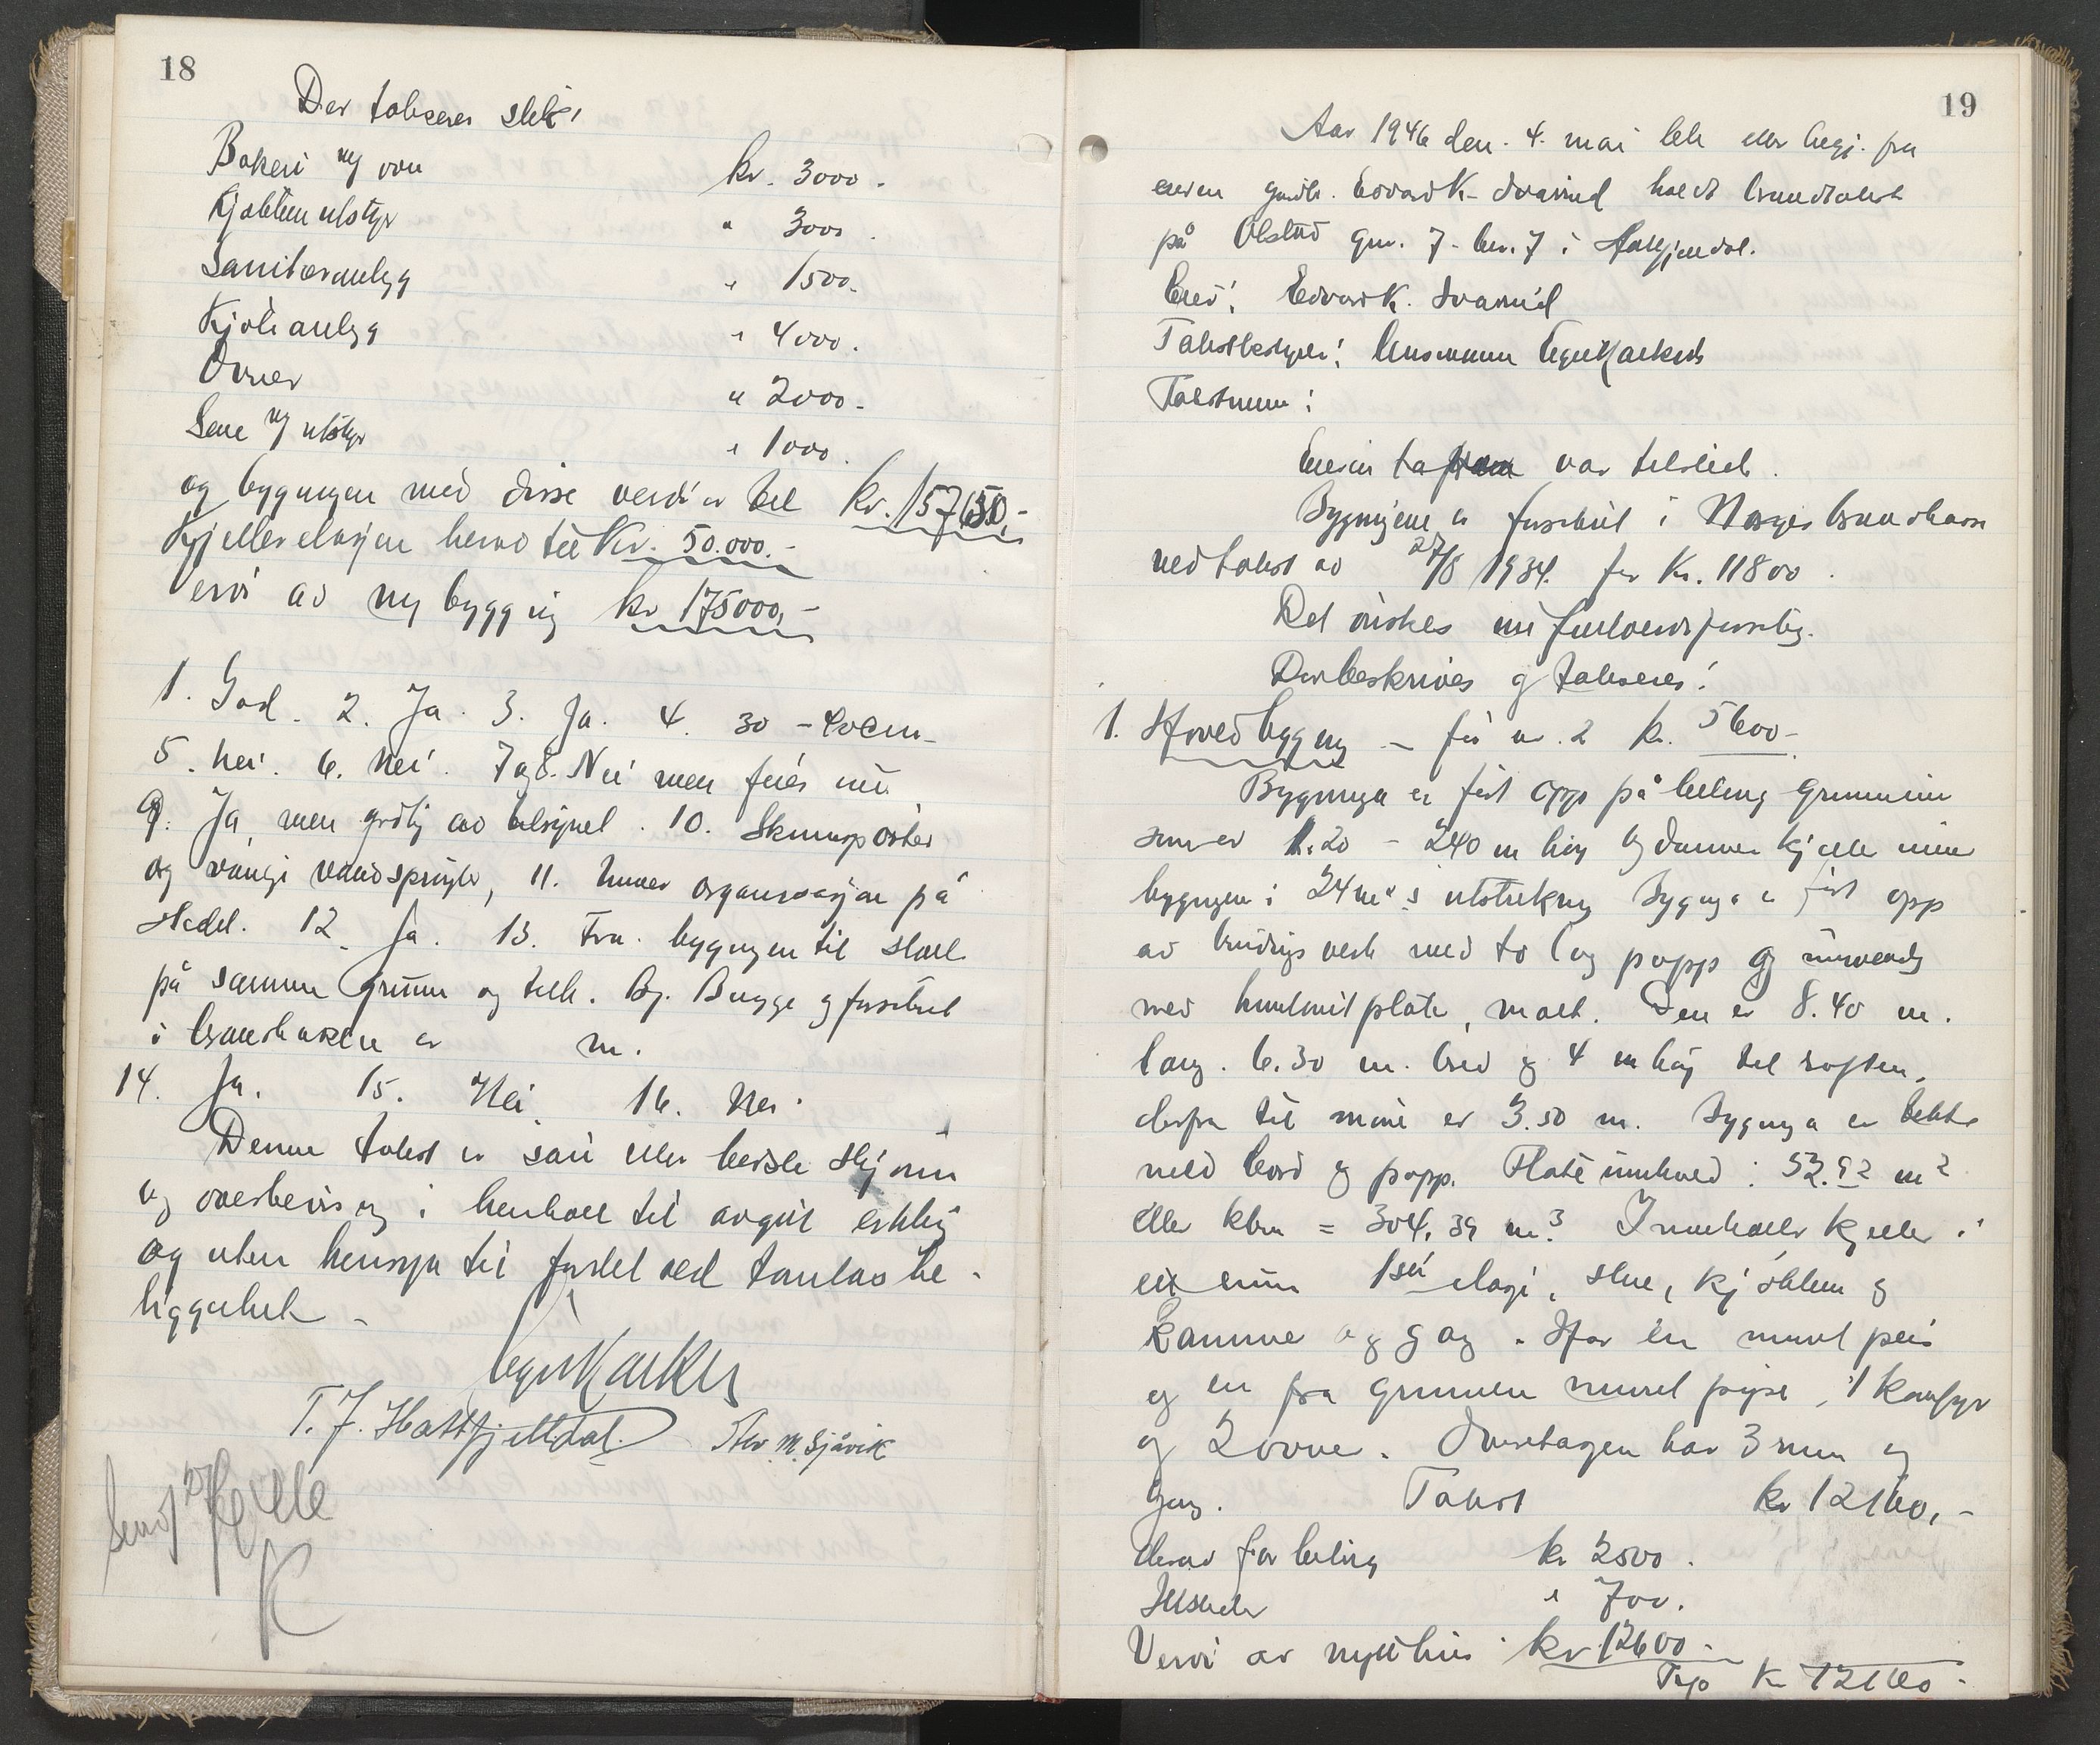 18
Der takseres slik:
Bakeri og ovn kr. 3000.-
Kjøkken utstyr " 3000.
Sanitæranlegg " 1500.-
Kjøleanlegg " 4000.
Ovner " 2000.-
Scene og utstyr " 1000.
og bygningen med disse verdier til kr. 157650,-
Kjelleretasjen herav til Kr. 50.000.-
Verdi av ny bygging kr 175000,-
1. God. 2. Ja. 3. Ja. 4. 30 - 40 cm.
5. Nei. 6. Nei. 7 og 8. Nei men feies nu
9. Ja, men godtj av tilsynet. 10. Skumsposter
og vanlige vandsprøyte, 11. Under organisasjon på
stedet. 12. Ja. 13. Fra bygningen til stall
på samme grunn og tilh. Bj. Bugge og forsikret
i brandkassen er m.
14. Ja. 15. Nei. 16. Nei.
Denne takst er satt etter beste skjønn
og overbevisning i henhold til avgitt erklæring
og uten hensyn til fordel ved tomtas be-
liggenhet -
T. J. Hattfjelldal. M. Sjåvik
K
19
Aar 1946 den 4. mai ble etter begj. fra
eieren gårdbr. Edvard K. Svarrud holdt brandtakst
på Olstad gnr. 7 bnr. 7 i Hattfjelldal.
Eier: Edvard K. Svarrud
Takstbestyrer: lensmann
Takstmenn:
Eieren var tilstede.
Bygningene er forsikret i Norges brandkasse
ved takst av 27/8 1934 for Kr. 11800.
Det ønskes nu fullverdiforsikring.
Der beskrives og takseres:
1. Hovedbygning - før nr. 2 kr. 5600-
Bygninga er ført opp på beting grunnmur
som er 1.20 - 2.40 m høy og danner kjeller under
bygningen i 24 m² s utstrekning. Bygninga er ført opp
av bindings verk med to lag papp og innvendig
med huntonitplate, malt. Den er 8.40 m.
lang. 6.30 m. bred og 4 m høy til raften,
derfra til møne er 3.50 m. Bygninga er tekket
med bord og papp. Flateinnhold: 52.92 m²
eller kbm = 304,39 m³. Inneholder kjeller i
ett rum 1ste etage, stue, kjøkken og
kammer og gang. Har en muret peis
og en fra grunnen muret pipe, 1 komfyr
og 2 ovner. Overetagen har 3 rum og
gang. Takst kr 12160,-
derav for beting kr 2500.
Ildsteder " 700.
Verdi av nytt hus kr 12600.-
Trsp K 12160.-